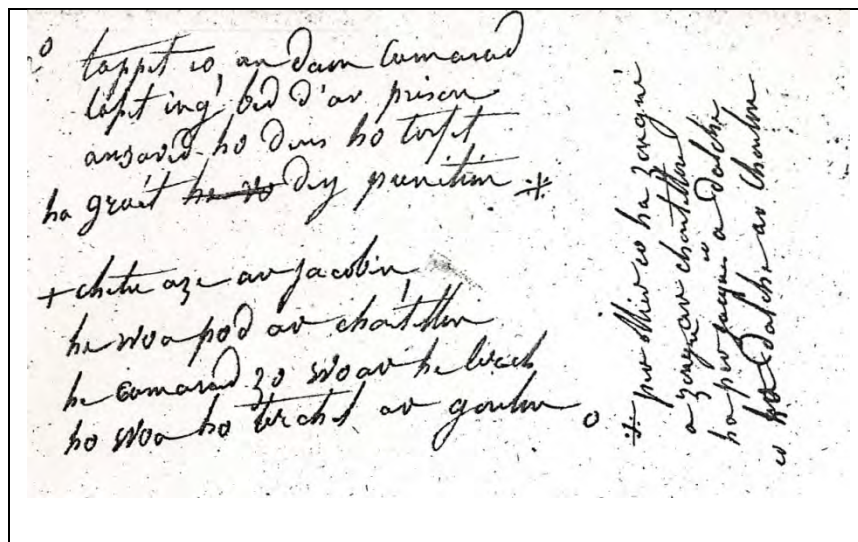 o tappet eo, an daou Camarad
laket ing', bed d'ar prison
ansaved ho deus ho torfet
ha graet he vo dey punition ⁜
+ chetu aze ar jacobin
he voa pod ar chantellou
he camarad zo voar he lerch
ho voa ho terchel ar goulou o
⁜ per ollier eo ha zougué
a zougué ar chantellou
ha per jacques eo a dalche
eo a dalche ar c'houlou